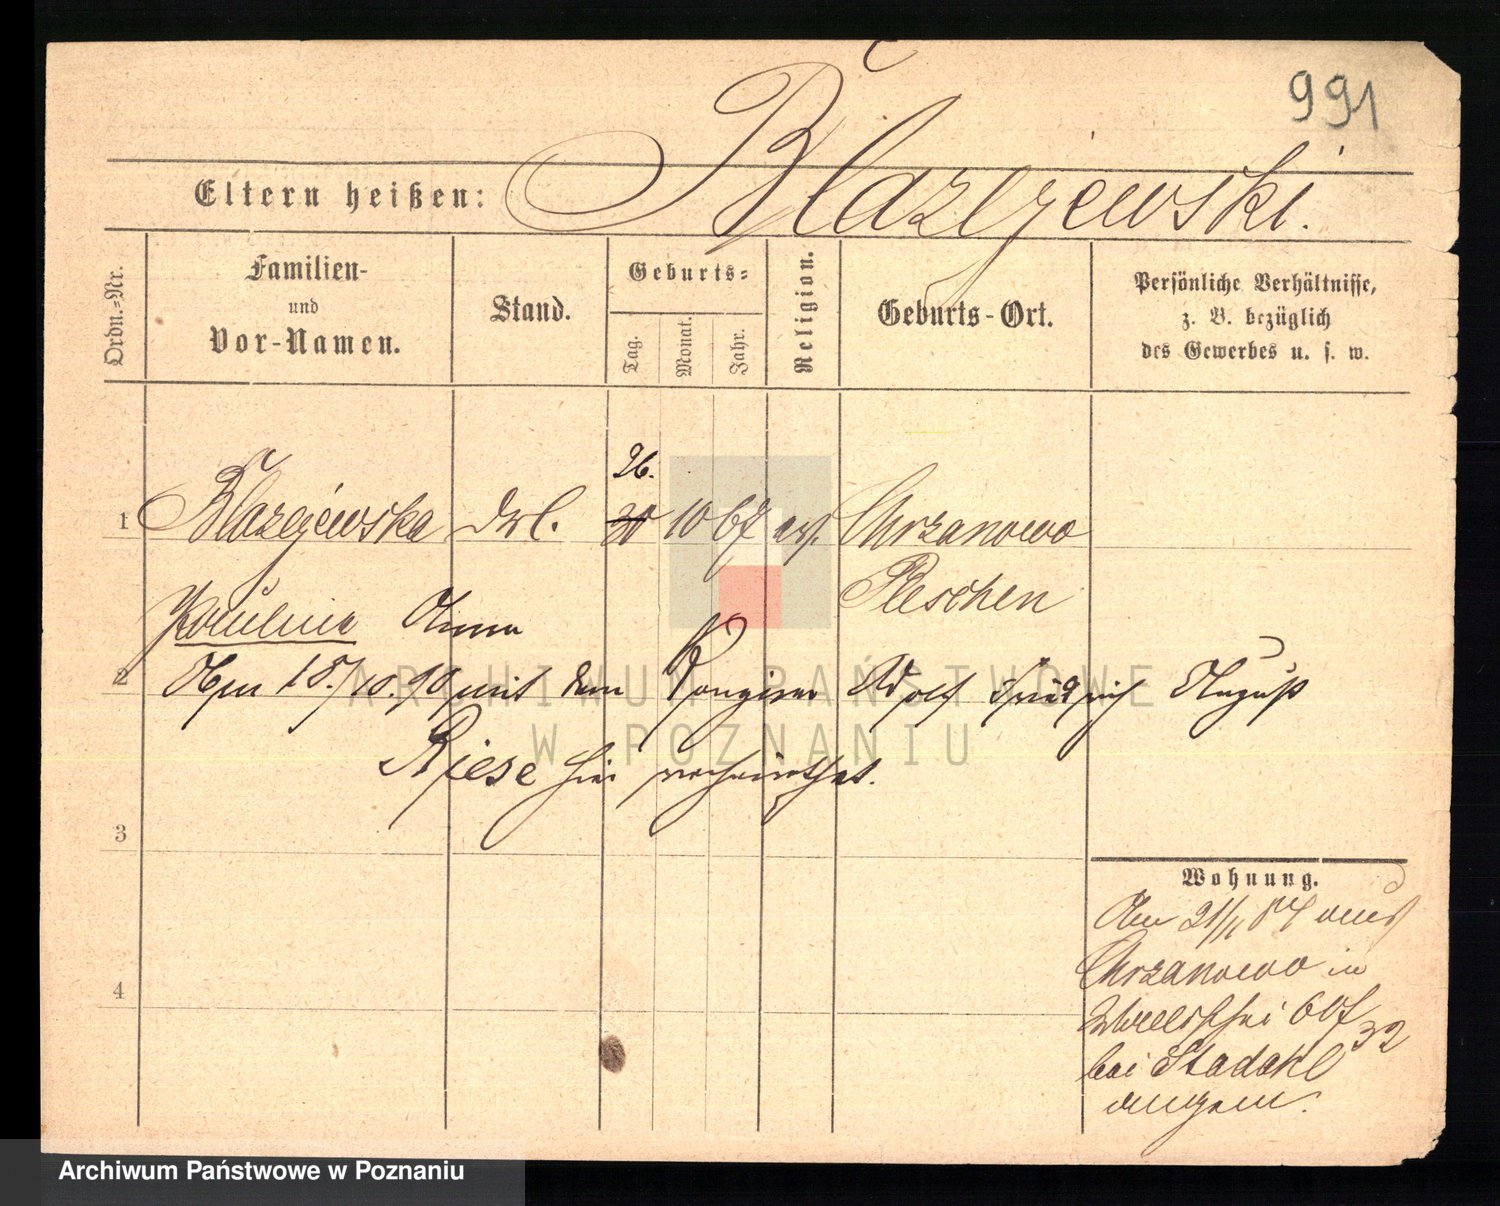 991
Eltern heißen: Blazejewski.
Ordn.-Nr.
Familien-
und
Vor-Namen.
Stand.
Geburts-
Tag.
Monat.
Jahr.
Religion.
Geburts-Ort.
Persönliche Verhältnisse,
z. B. bezüglich
des Gewerbes u. s. w.
26.
1 Blazejewska 10 67 Chrzanowo
Pleschen
Pauline Anna
2 18./10. 90 mit dem Adolf Friedrich August
Riese hier verheirathet.
3
Wohnung.
Am 21/1 84 aus
Chrzanowo in
4
32
bei
angem.
ARCHIWUM PAŃSTWOWE
W POZNANIU
Archiwum Państwowe w Poznaniu